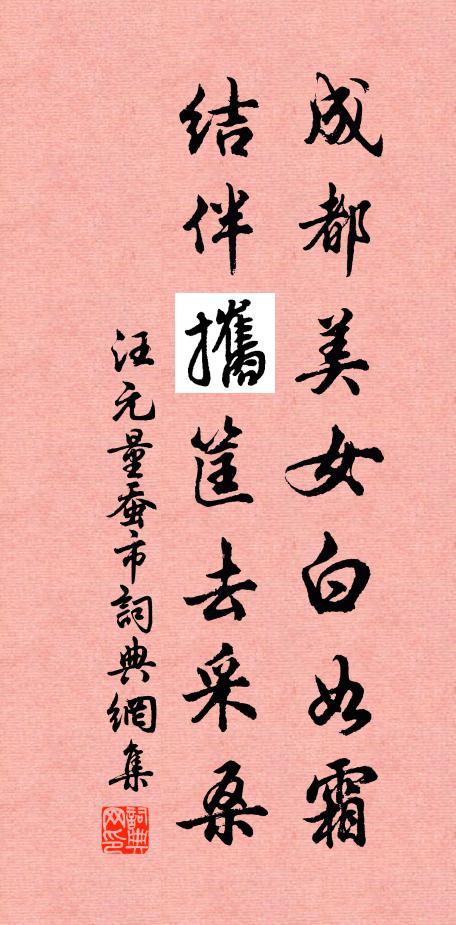 成都美女白如霜
結伴攜筐去采桑
汪元量蚕市詞典網集
詞典网印